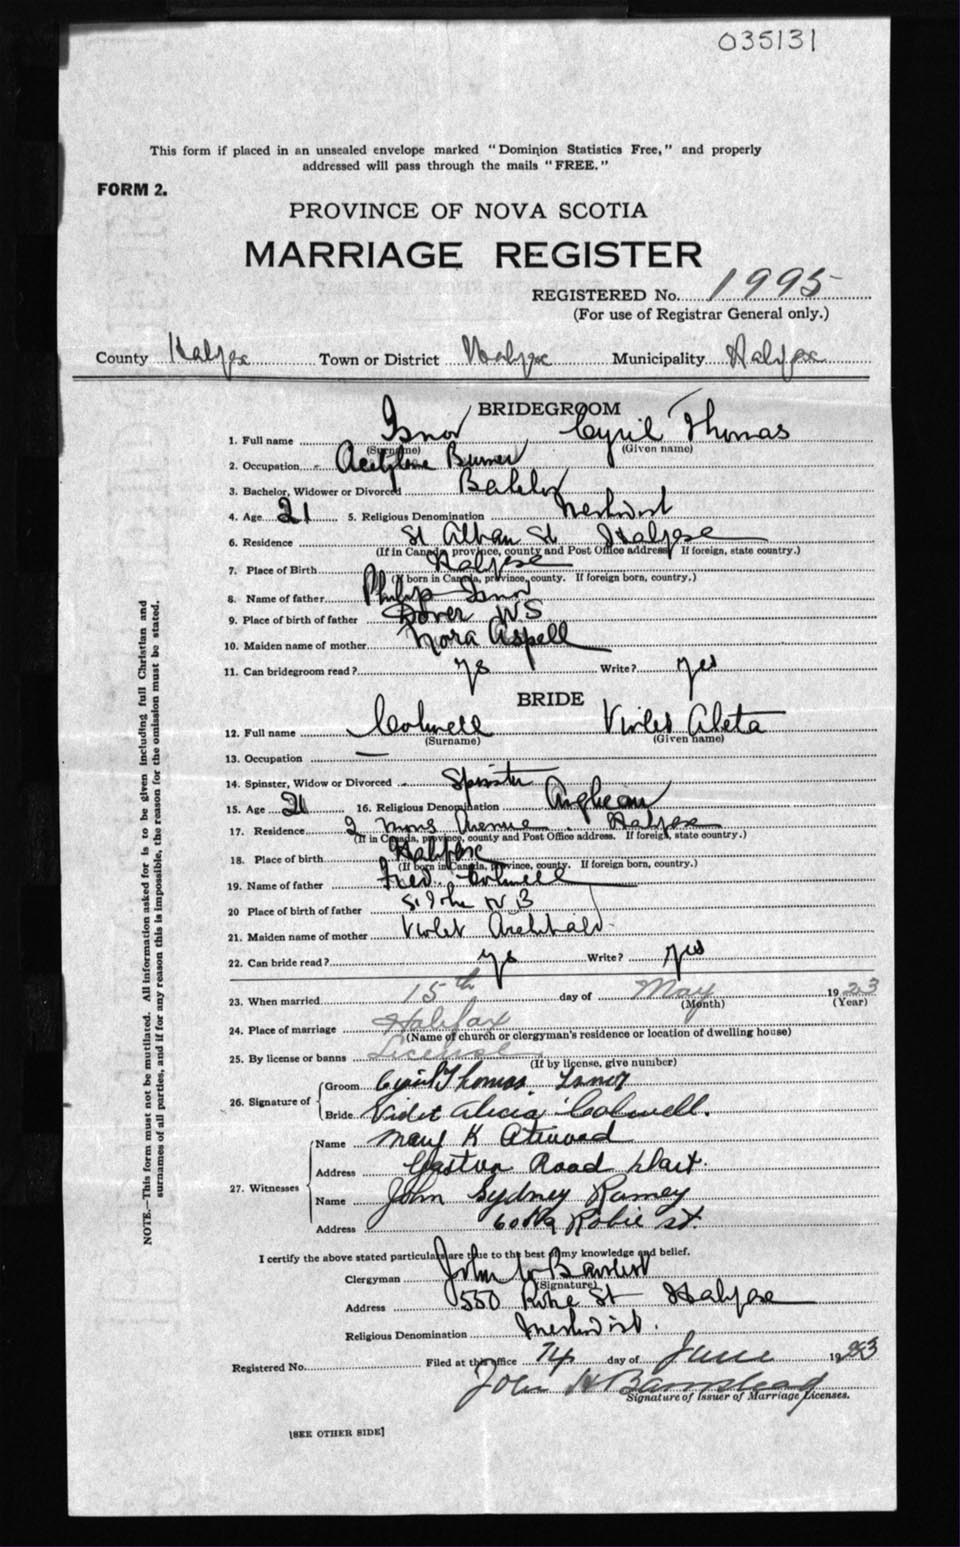 035131
This form if placed in an unsealed envelope marked "Dominion Statistics Free," and properly
addressed will pass through the mails "FREE."
FORM 2.
PROVINCE OF NOVA SCOTIA
MARRIAGE REGISTER
REGISTERED No. 1995
(For use of Registrar General only.)
County Halifax Town or District Halifax Municipality Halifax
BRIDEGROOM
1. Full name Isnor Cyril Thomas
(Surname) (Given name)
2. Occupation Acetylene Burner
3. Bachelor, Widower or Divorced Bachelor
4. Age 21 5. Religious Denomination Methodist
6. Residence St Alban St Halifax
(If in Canada, province, county and Post Office address If foreign, state country.)
7. Place of Birth Halifax
(If born in Canada, province, county. If foreign born, country.)
8. Name of father Philip Isnor
9. Place of birth of father Dover NS
10. Maiden name of mother Nora Aspell
11. Can bridegroom read? yes Write? yes
BRIDE
12. Full name Colwell Violet Aleta
(Surname) (Given name)
13. Occupation —
14. Spinster, Widow or Divorced Spinster
15. Age 21 16. Religious Denomination Anglican
17. Residence 2 Avenue Halifax
(If in Canada, province, county and Post Office address. If foreign, state country.)
18. Place of birth Halifax
(If born in Canada, province, county. If foreign born, country.)
19. Name of father Fred Colwell
20 Place of birth of father St John N B
21. Maiden name of mother Violet Archibald
22. Can bride read? yes Write? yes
23. When married 15th day of May 1923
(Month) (Year)
24. Place of marriage Halifax
(Name of church or clergyman's residence or location of dwelling house)
25. By license or banns License
(If by license, give number)
26. Signature of Groom Cyril Thomas Isnor
Bride Violet Alicia Colwell.
27. Witnesses Name Mary K Atwood
Address Road Dart.
Name John Sydney Ramey
Address Robie St.
I certify the above stated particulars are true to the best of my knowledge and belief.
Clergyman John W
(Signature)
Address 550 St Halifax
Religious Denomination Methodist.
Registered No. Filed at this office 14 day of June 1923
John H Barnstead
Signature of Issuer of Marriage Licenses.
[SEE OTHER SIDE]
NOTE.—This form must not be mutilated. All information asked for is to be given including full Christian and
surnames of all parties, and if for any reason this is impossible, the reason for the omission must be stated.